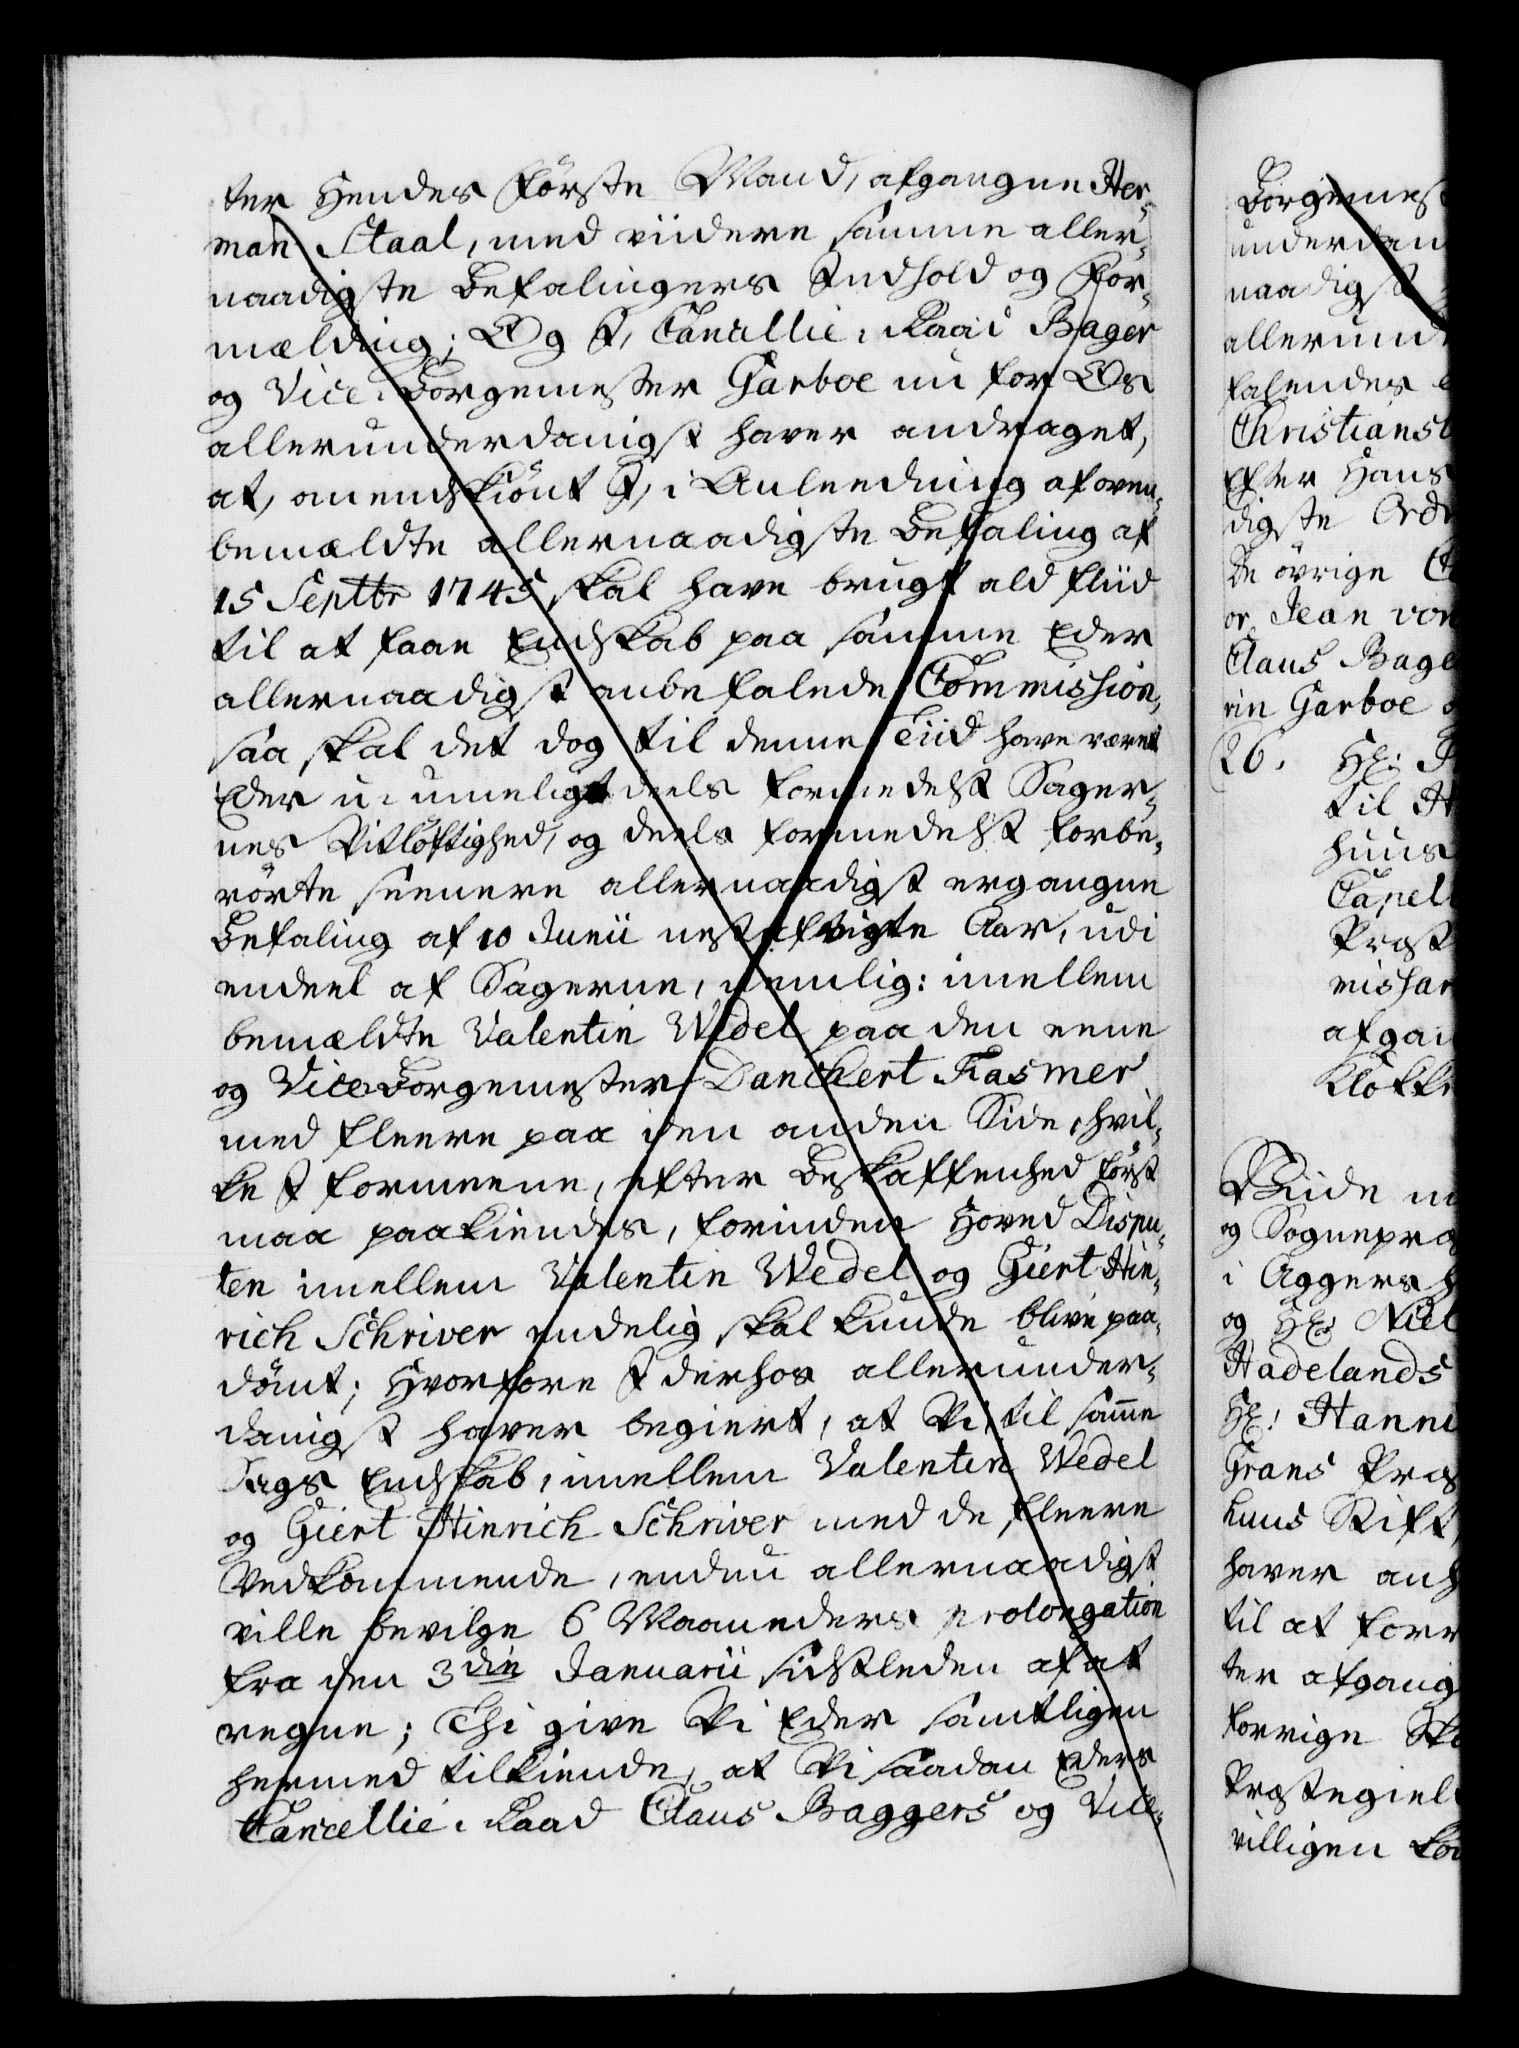 ter Hendes förste Mand, afgangne Her-
man Staal, med viidere samme aller-
naadigste Befalingers Indhold og For-
mælding; Og I, Cancellie-Raad Bager
og Vice-Borgemester Garboe nu for Os
allerunderdanigst haver andraget,
at, omendskiönt I, i Anleedning af oven-
bemældte allernaadigste Befaling af
15 Septbr 1745 skal have brugt ald fliid
til at faae Endskab paa samme Eder
allernaadigst anbefalede Commission,
saa skal det dog til denne Tiid have været
Eder u-mueligt deels formedelst Sager-
nes Vitlöftighed, og deels formedelst forbe-
rörte seenere allernaadigst ergangne
Befaling af 10 Junii nestafvigte Aar, udi
endeel af Sagerne, nemlig: imellem
bemældte Valentin Wedel paa den eene
og Vice Borgemester Danckert Fasmer
med fleere paa den anden Side, hvil-
ke I formeene, efter Beskaffenhed först
maa paakiendes, forinden Hoved Dispu-
ten imellem Valentin Wedel og Giert Hin-
rich Schriver endelig skal kunde blive paa-
dömt; Hvorfore I derhos allerunder-
danigst haver begiert, at Vi, til samme
Sags Endskab, imellem Valentin Wedel
og Giert Hinrich Schriver med de fleere
Vedkommende, endnu allernaadigst
ville bevilge 6 Maaneders prolongation
fra den 3die Januarii sidstleden af at
regne; Thi give Vi Eder samtligen
hermed tilkiende, at Vi saadan Eders
Cancellie-Raad Claus Baggers og Vice-
Borgemest
underdan
naadigst
allerund
falendes
Christiansb
Efter Hans
digste Ordr
De övrige
or, Jean von
Claus Bage
rin Garboe
26. Hr:
til H
huus
Capell
Præst
mishar
afgan
Klokke
Viide m
og Sognepræ
i Aggersh
og Hr: Niel
Hadelands
Hr: Hanni
Grans Præs
huus Stift,
haver anh
til at forr
ter afgang
forrige
Præstegiel
villigen